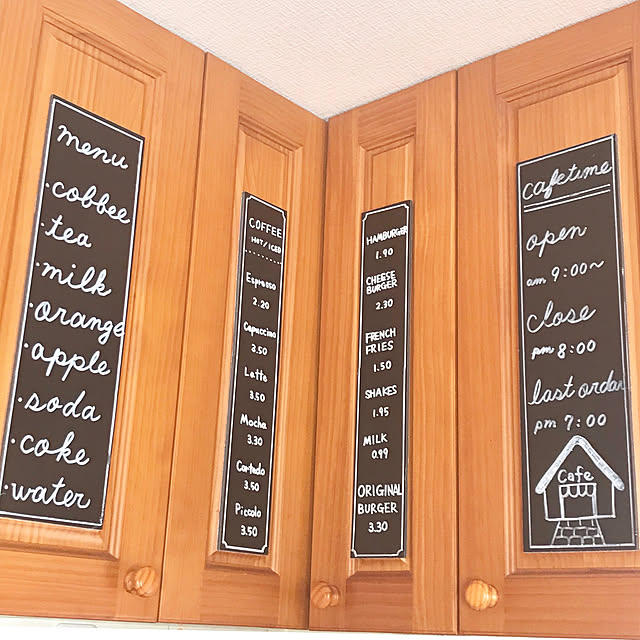 menu
·cobbee
·tea
·milk
·orange
·apple
·soda
·coke
·water
COFFEE
HOT/ICED
Espresso
2.20
Capuccino
3.50
Latte
3.50
Mocha
3.30
Cortado
3.50
Piccolo
3.50
HAMBURGER
1.90
CHEESE
BURGER
2.30
FRENCH
FRIES
1.50
SHAKES
1.95
MILK
0.99
ORIGINAL
BURGER
3.30
cafetime
open
am 9:00~
close
pm 8:00
last ordar
pm 7:00
Cafe